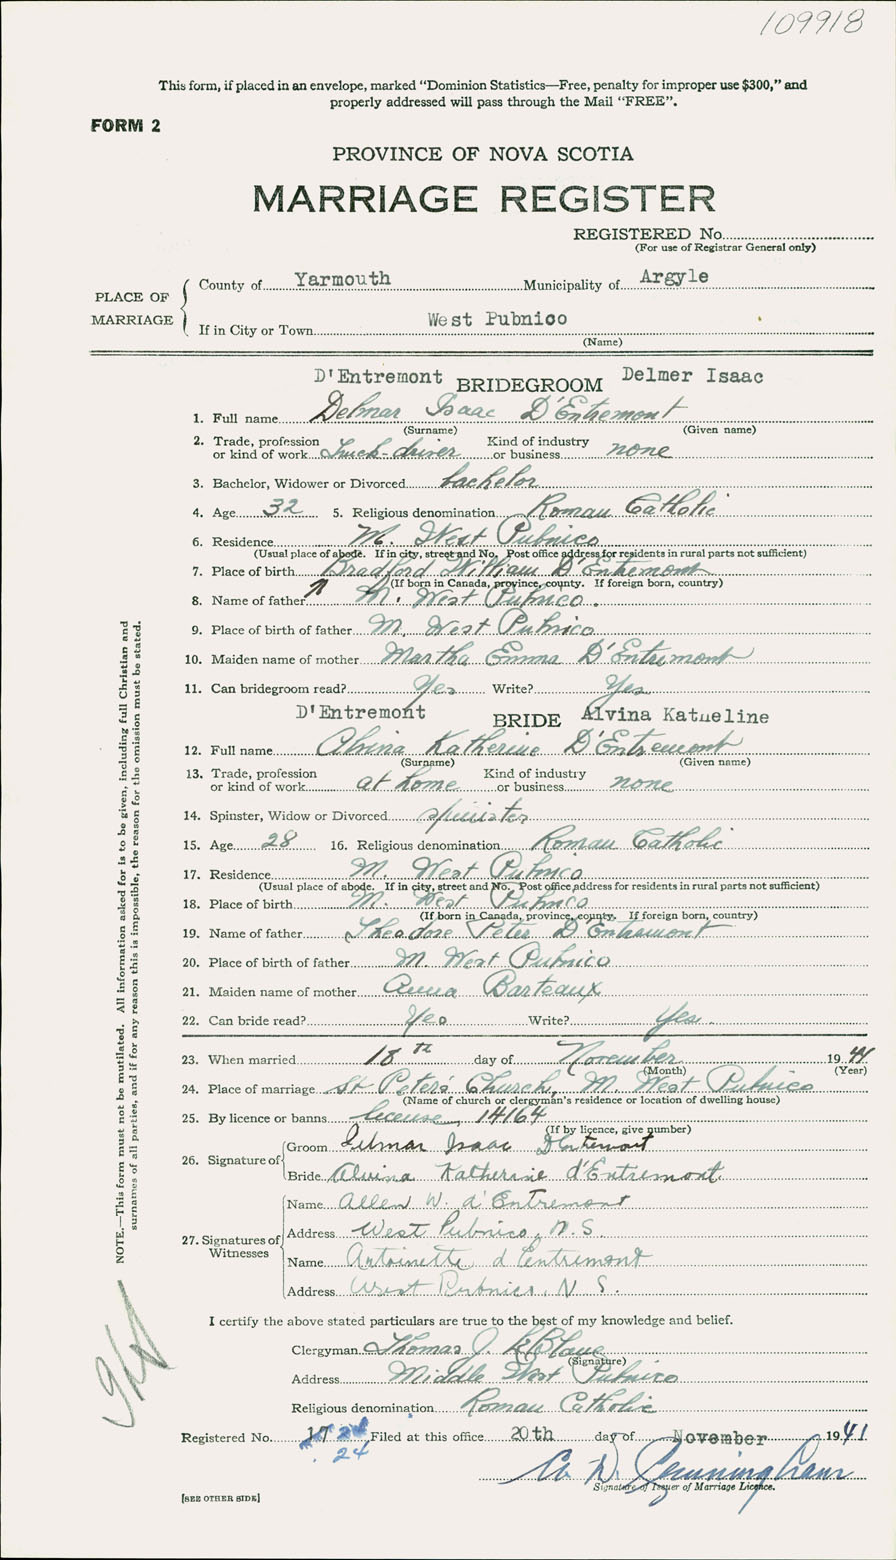 109918
This form, if placed in an envelope, marked “Dominion Statistics—Free, penalty for improper use $300,” and
properly addressed will pass through the Mail “FREE”.
FORM 2
PROVINCE OF NOVA SCOTIA
MARRIAGE REGISTER
REGISTERED No.
(For use of Registrar General only)
PLACE OF MARRIAGE
County of Yarmouth Municipality of Argyle
If in City or Town West Pubnico
(Name)
D'Entremont BRIDEGROOM Delmer Isaac
1. Full name Delmar Isaac D'Entremont
(Surname) (Given name)
2. Trade, profession or kind of work Truck-driver Kind of industry or business none
3. Bachelor, Widower or Divorced bachelor
4. Age 32 5. Religious denomination Roman Catholic
6. Residence M. West Pubnico
(Usual place of abode. If in city, street and No. Post office address for residents in rural parts not sufficient)
7. Place of birth Bradford William D'Entremont
(If born in Canada, province, county. If foreign born, country)
8. Name of father M. West Pubnico.
9. Place of birth of father M. West Pubnico
10. Maiden name of mother Martha Emma D'Entremont
11. Can bridegroom read? Yes Write? Yes
D'Entremont BRIDE Alvina Katheline
12. Full name Alvina Katherine D'Entremont
(Surname) (Given name)
13. Trade, profession or kind of work at home Kind of industry or business none
14. Spinster, Widow or Divorced spinster
15. Age 28 16. Religious denomination Roman Catholic
17. Residence M. West Pubnico
(Usual place of abode. If in city, street and No. Post office address for residents in rural parts not sufficient)
18. Place of birth M. West Pubnico
(If born in Canada, province, county. If foreign born, country)
19. Name of father Theodore Peter D'Entremont
20. Place of birth of father M. West Pubnico
21. Maiden name of mother Anna Barteaux
22. Can bride read? Yes Write? Yes.
23. When married 18th day of November 1941
(Month) (Year)
24. Place of marriage St Peter's Church, M. West Pubnico
(Name of church or clergyman's residence or location of dwelling house)
25. By licence or banns license 14164
(If by licence, give number)
26. Signature of Groom Delmar Isaac D'Entremont
Bride Alvina Katherine d'Entremont.
27. Signatures of Witnesses
Name Allen W. d'Entremont
Address West Pubnico, N.S.
Name Antoinette d'Entremont
Address West Pubnico, N.S.
I certify the above stated particulars are true to the best of my knowledge and belief.
Clergyman Thomas J. LeBlanc
(Signature)
Address Middle West Pubnico
Religious denomination Roman Catholic
Registered No. 17 24 Filed at this office 20th day of November 1941
Cunningham
Signature of Issuer of Marriage Licence.
[SEE OTHER SIDE]
NOTE.—This form must not be mutilated. All information asked for is to be given, including full Christian and
surnames of all parties, and if for any reason this is impossible, the reason for the omission must be stated.